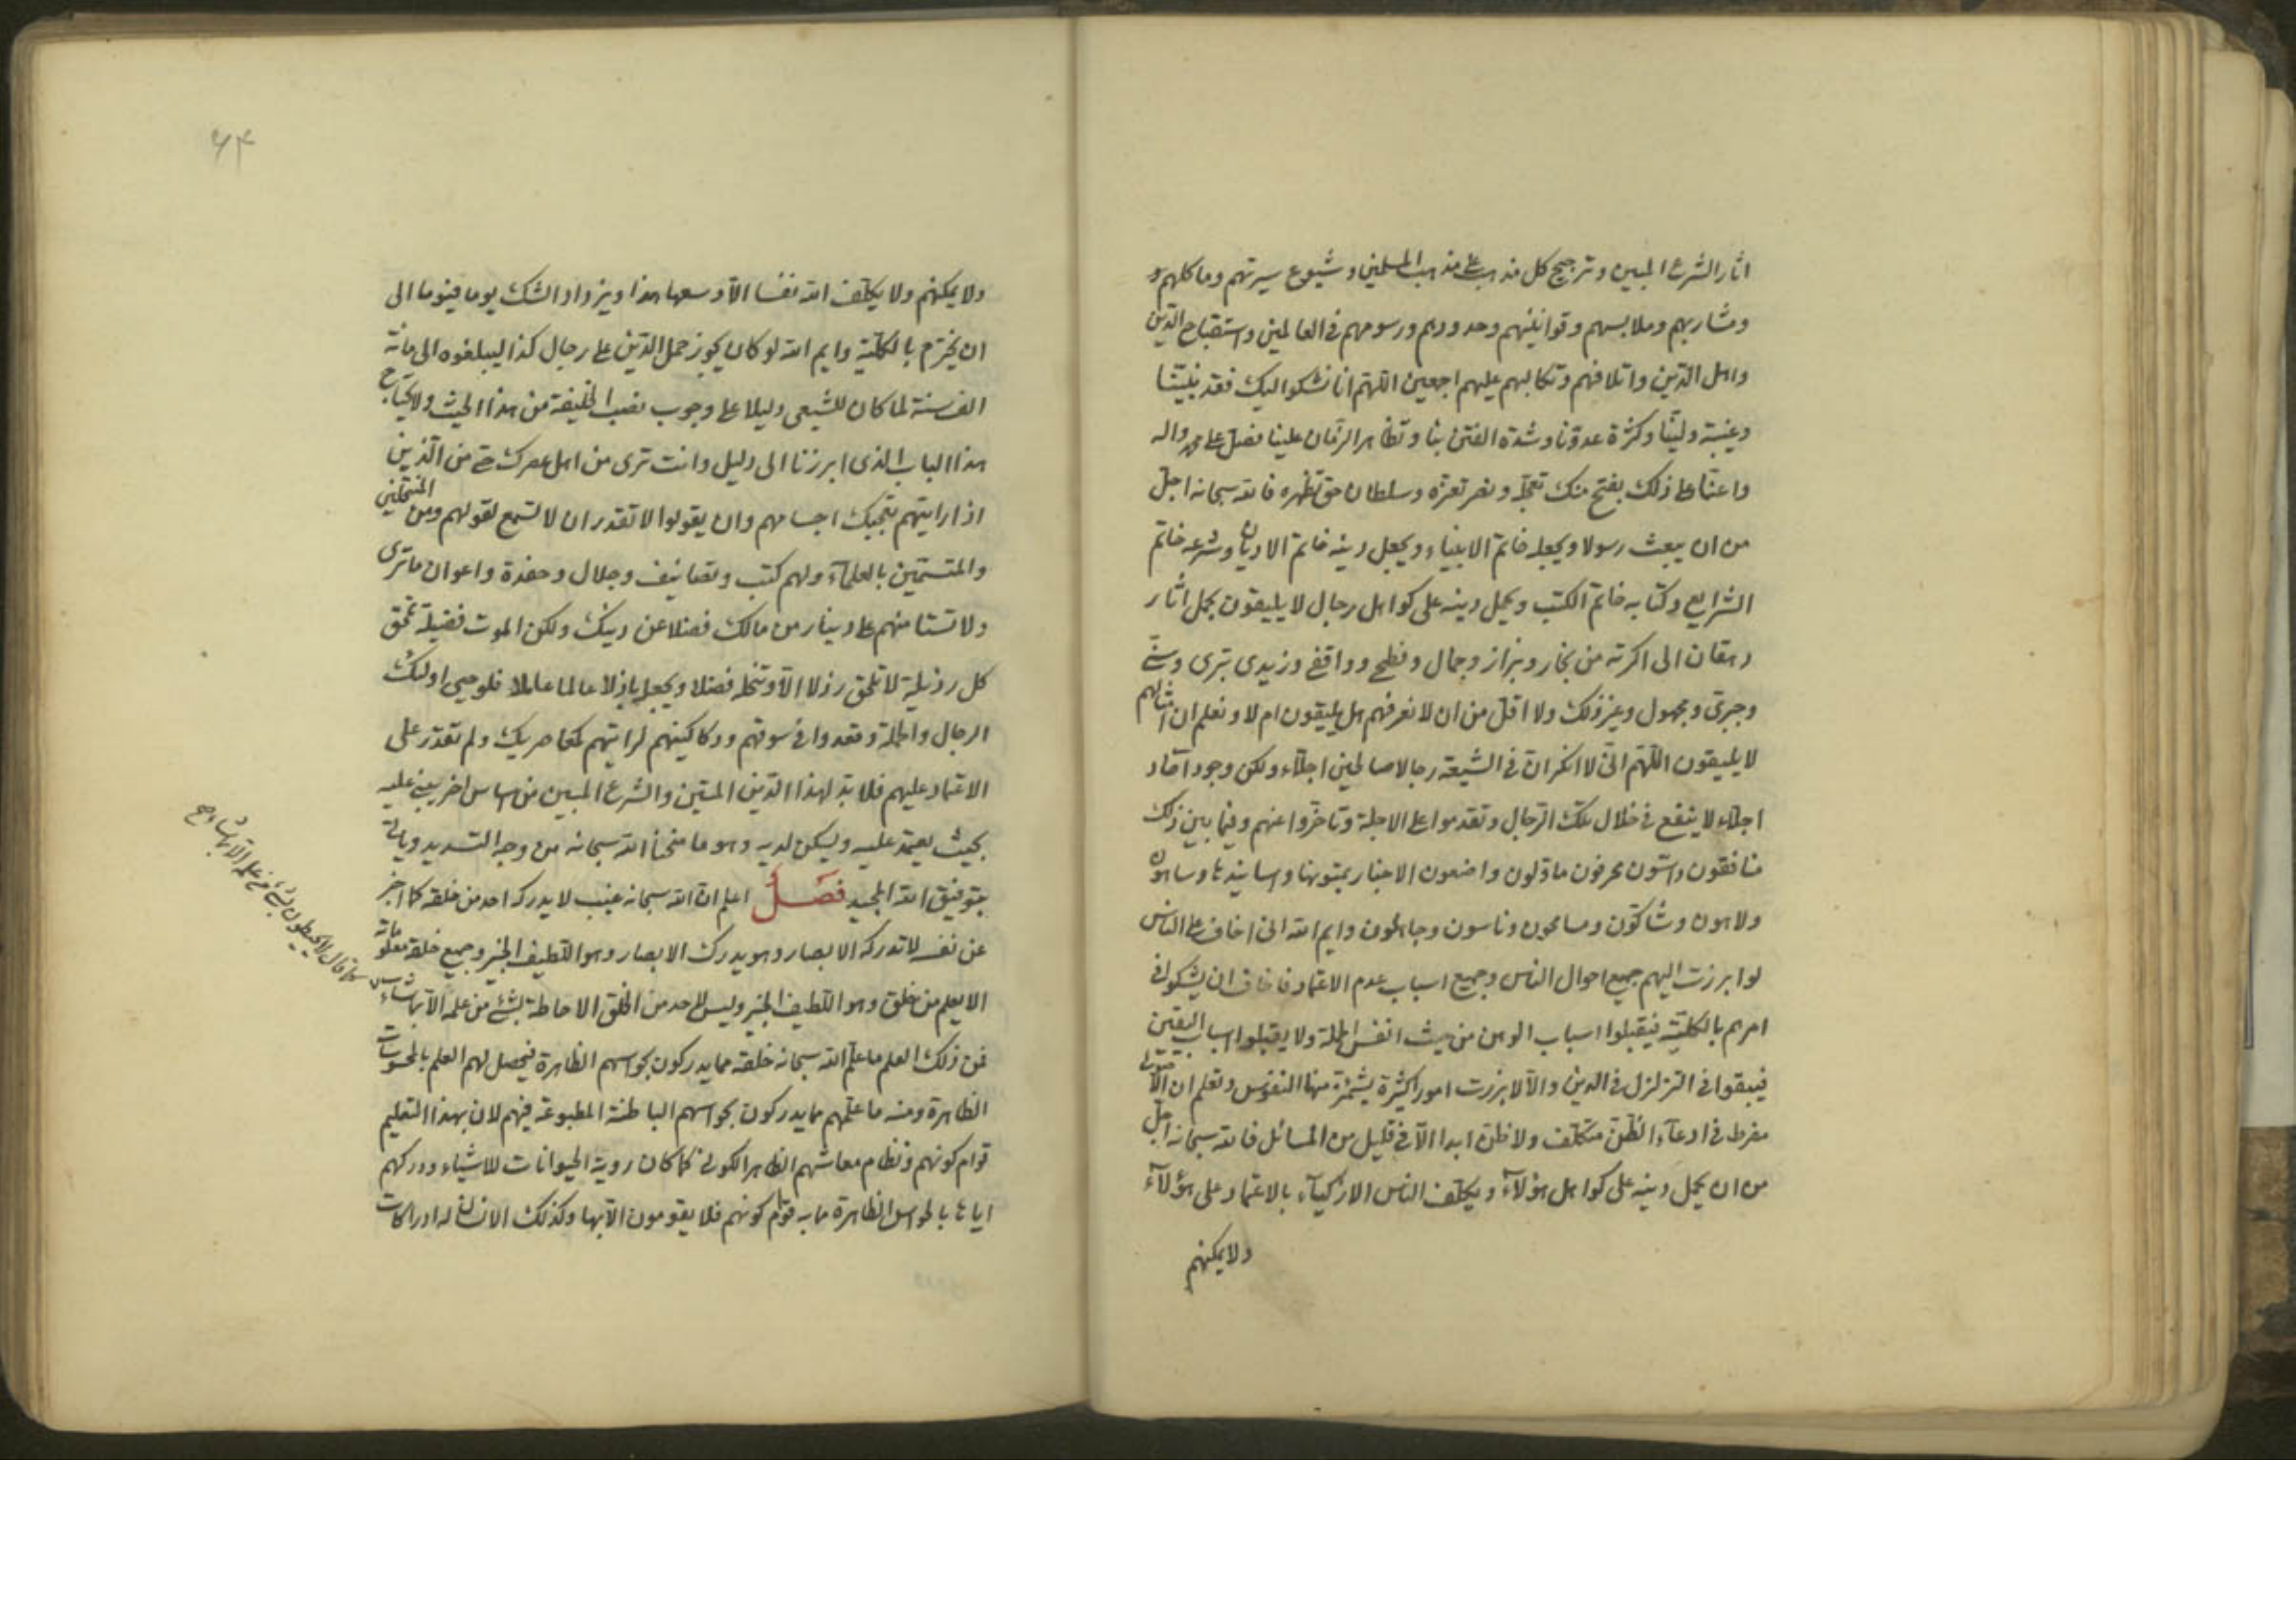 اثار الشرع المبين وترجيح كل مذهب على مذهب المسلمين وشيوع سيرتهم وماكلهم و
ومشاربهم وملابسهم وقوانينهم وحدودهم ورسومهم فى العالمين واستقباح الدين
واهل الدين واتلافهم وتكالبهم عليهم اجمعين اللهم انا نشكوا اليك فقد نبيّنا
وغيبة وليّنا وكثرة عدوّنا وشدة الفتن بنا وتظاهر الزمان علينا فصلّ على محمد واله
واعنّا على ذلك بفتح منك تعجله ونصر تعزه وسلطان حق تظهره فالله سبحانه اجلّ
من ان يبعث رسولا ويجعله خاتم الانبياء ويجعل دينه خاتم الاديان وشرعه خاتم
الشرايع وكتابه خاتم الكتب ويحمل دينه على كواهل رجال لا يليقون بحمل اثار
دهقان الى اكرته من نجار وبزاز وجمال وفطحى وواقفى وزيدى بترى وسنّى
وجبرى ومجهول وغير ذلك ولا اقلّ من ان لا نعرفهم هل يليقون ام لا ونعلم ان امثالهم
لا يليقون اللهم انّى لا انكر ان فى الشيعة رجالا صالحين اجلّاء ولكن وجود آحاد
اجلّاء لا ينفع فى خلال تلك الرجال وتقدموا على الاجلة وتاخّروا عنهم وفيما بين ذلك
منافقون داسّون محرفون ماوّلون واضعون الاخبار بمتونها واسانيدها وساهون
ولاهون وشاكّون ومسامحون وناسون وجاهلون وايم الله انى اخاف على الناس
لو ابرزت اليهم جميع احوال الناس وجميع اسباب عدم الاعتماد فاخاف ان يشكوا فى
امرهم بالكلية فيقبلوا اسباب الوهن من حيث انفس الحملة ولا يقبلوا اسباب اليقين
فيبقوا فى التزلزل فى الدين والّا لابرزت امورا كثيرة يشمئز منها النفوس وتعلم ان الاصولى
مفرط فى ادعاء الظن متكلف ولا ظن ابدا الّا فى قليل من المسائل فالله سبحانه اجلّ
من ان يحمل دينه على كواهل هؤلآء ويكلّف الناس الازكيآء بالاعتماد على هؤلآء
ولا يمكنهم
۶۴
ولا يمكنهم ولا يكلّف الله نفسا الّا وسعها هذا ويزداد الشك يوما فيوما الى
ان يخترم بالكلية وايم الله لو كان يجوز حمل الدّين على رجال كذا ليبلغوه الى مائة
الف سنة لما كان للشيعى دليلا على وجوب نصب الخليفة من هذا الحيث ولا يحتاج
هذا الباب الذى ابرزنا الى دليل وانت ترى من اهل عصرك حتى من الّذين
اذا رايتهم تعجبك اجسامهم وان يقولوا لا تقدر ان لا تسمع لقولهم ومن المنتحلين
والمتسمّين بالعلمآء ولهم كتب وتصانيف وجلال وحفدة واعوان ما ترى
ولا تستامنهم على دينار من مالك فضلا عن دينك ولكن الموت فضيلة تمحق
كل رذيلة لا تلحق رذلا الّا وتنحله فضلا ويجعل باذلا عالما عاملا فلو حيى اولئك
الرجال والحملة وقعدوا فى سوقهم ودكاكينهم لرايتهم كمعاصريك ولم تقدر على
الاعتماد عليهم فلا بدّ لهذا الدّين المتين والشرع المبين من اساس اخر يبنى عليه
بحيث يعتمد عليه ويسكن لديه وهو ما منحنا الله سبحانه من وجه التسديد وياتى
بتوفيق الله المجيد فصل اعلم ان الله سبحانه غيب لا يدركه احد من خلقه كما اخبر
عن نفسه لا تدركه الابصار وهو يدرك الابصار وهو اللّطيف الخبير وجميع خلقه معلوماته
الا يعلم من خلق وهو اللّطيف الخبير وليس لاحد من الخلق الاحاطة بشئ من علمه الّا بما شاء
كما قال لا يحيطون بشئ من علمه الّا بما شاء صح
فمن ذلك العلم ما علّم الله سبحانه خلقه مما يدركون بحواسهم الظاهرة فيحصل لهم العلم بالمحسوسات
الظاهرة ومنه ما علّمهم مما يدركون بحواسهم الباطنة المطبوعة فيهم لان بهذا التعليم
قوام كونهم ونظام معاشهم الظاهر الكونى كما كان روية الحيوانات للاشياء ودركهم
اياها بالحواس الظاهرة ما به قوام كونهم فلا يقومون الّا بها وكذلك الانسان له ادراكات